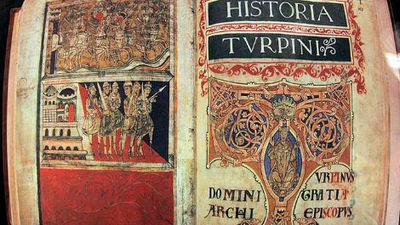 HISTORIA
TVRPINI
VRPINUS
DOMINI GRATIA
ARCHI EPISCOPUS